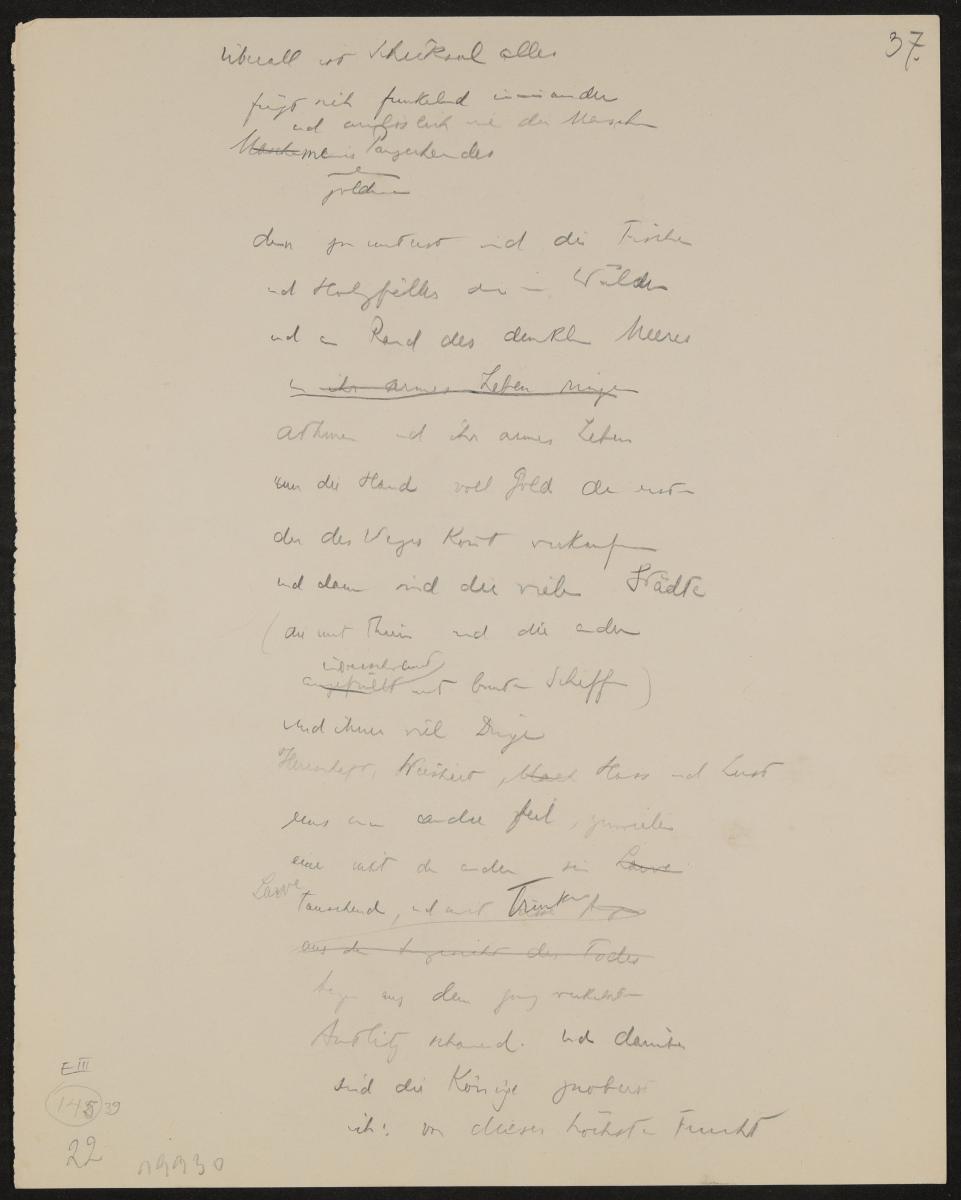 37.
überall ist Schicksal alles
fügt sich funkelnd ineinander
und unauflöslich wie die Maschen
Masche meines Panzerhemdes
goldenen
denn zu unterst sind die Fischer
und Holzfäller die in Wäldern
und am Rand des dunklen Meeres
in ihr armes Leben
athmen und ihr armes Leben
um die Hand voll Gold dem ersten
der des Weges kommt verkaufen
und dann sind die vielen Städte
(die mit Thürmen und die andern
angefüllt mit bunten Schiffen)
und in ihnen viele Dinge
Herrschaft, Weisheit, Hass und Lust
eins ums andre feil, zuweilen
eine mit der andern Larve
Larve
tauschend, und mit
aus dem Angesicht des Todes
Augen aus dem ganz verkehrten
Antlitz schauend. Und darüber
sind die Könige zuoberst
ich: von dieser höchsten Frucht
E III
145 39
22